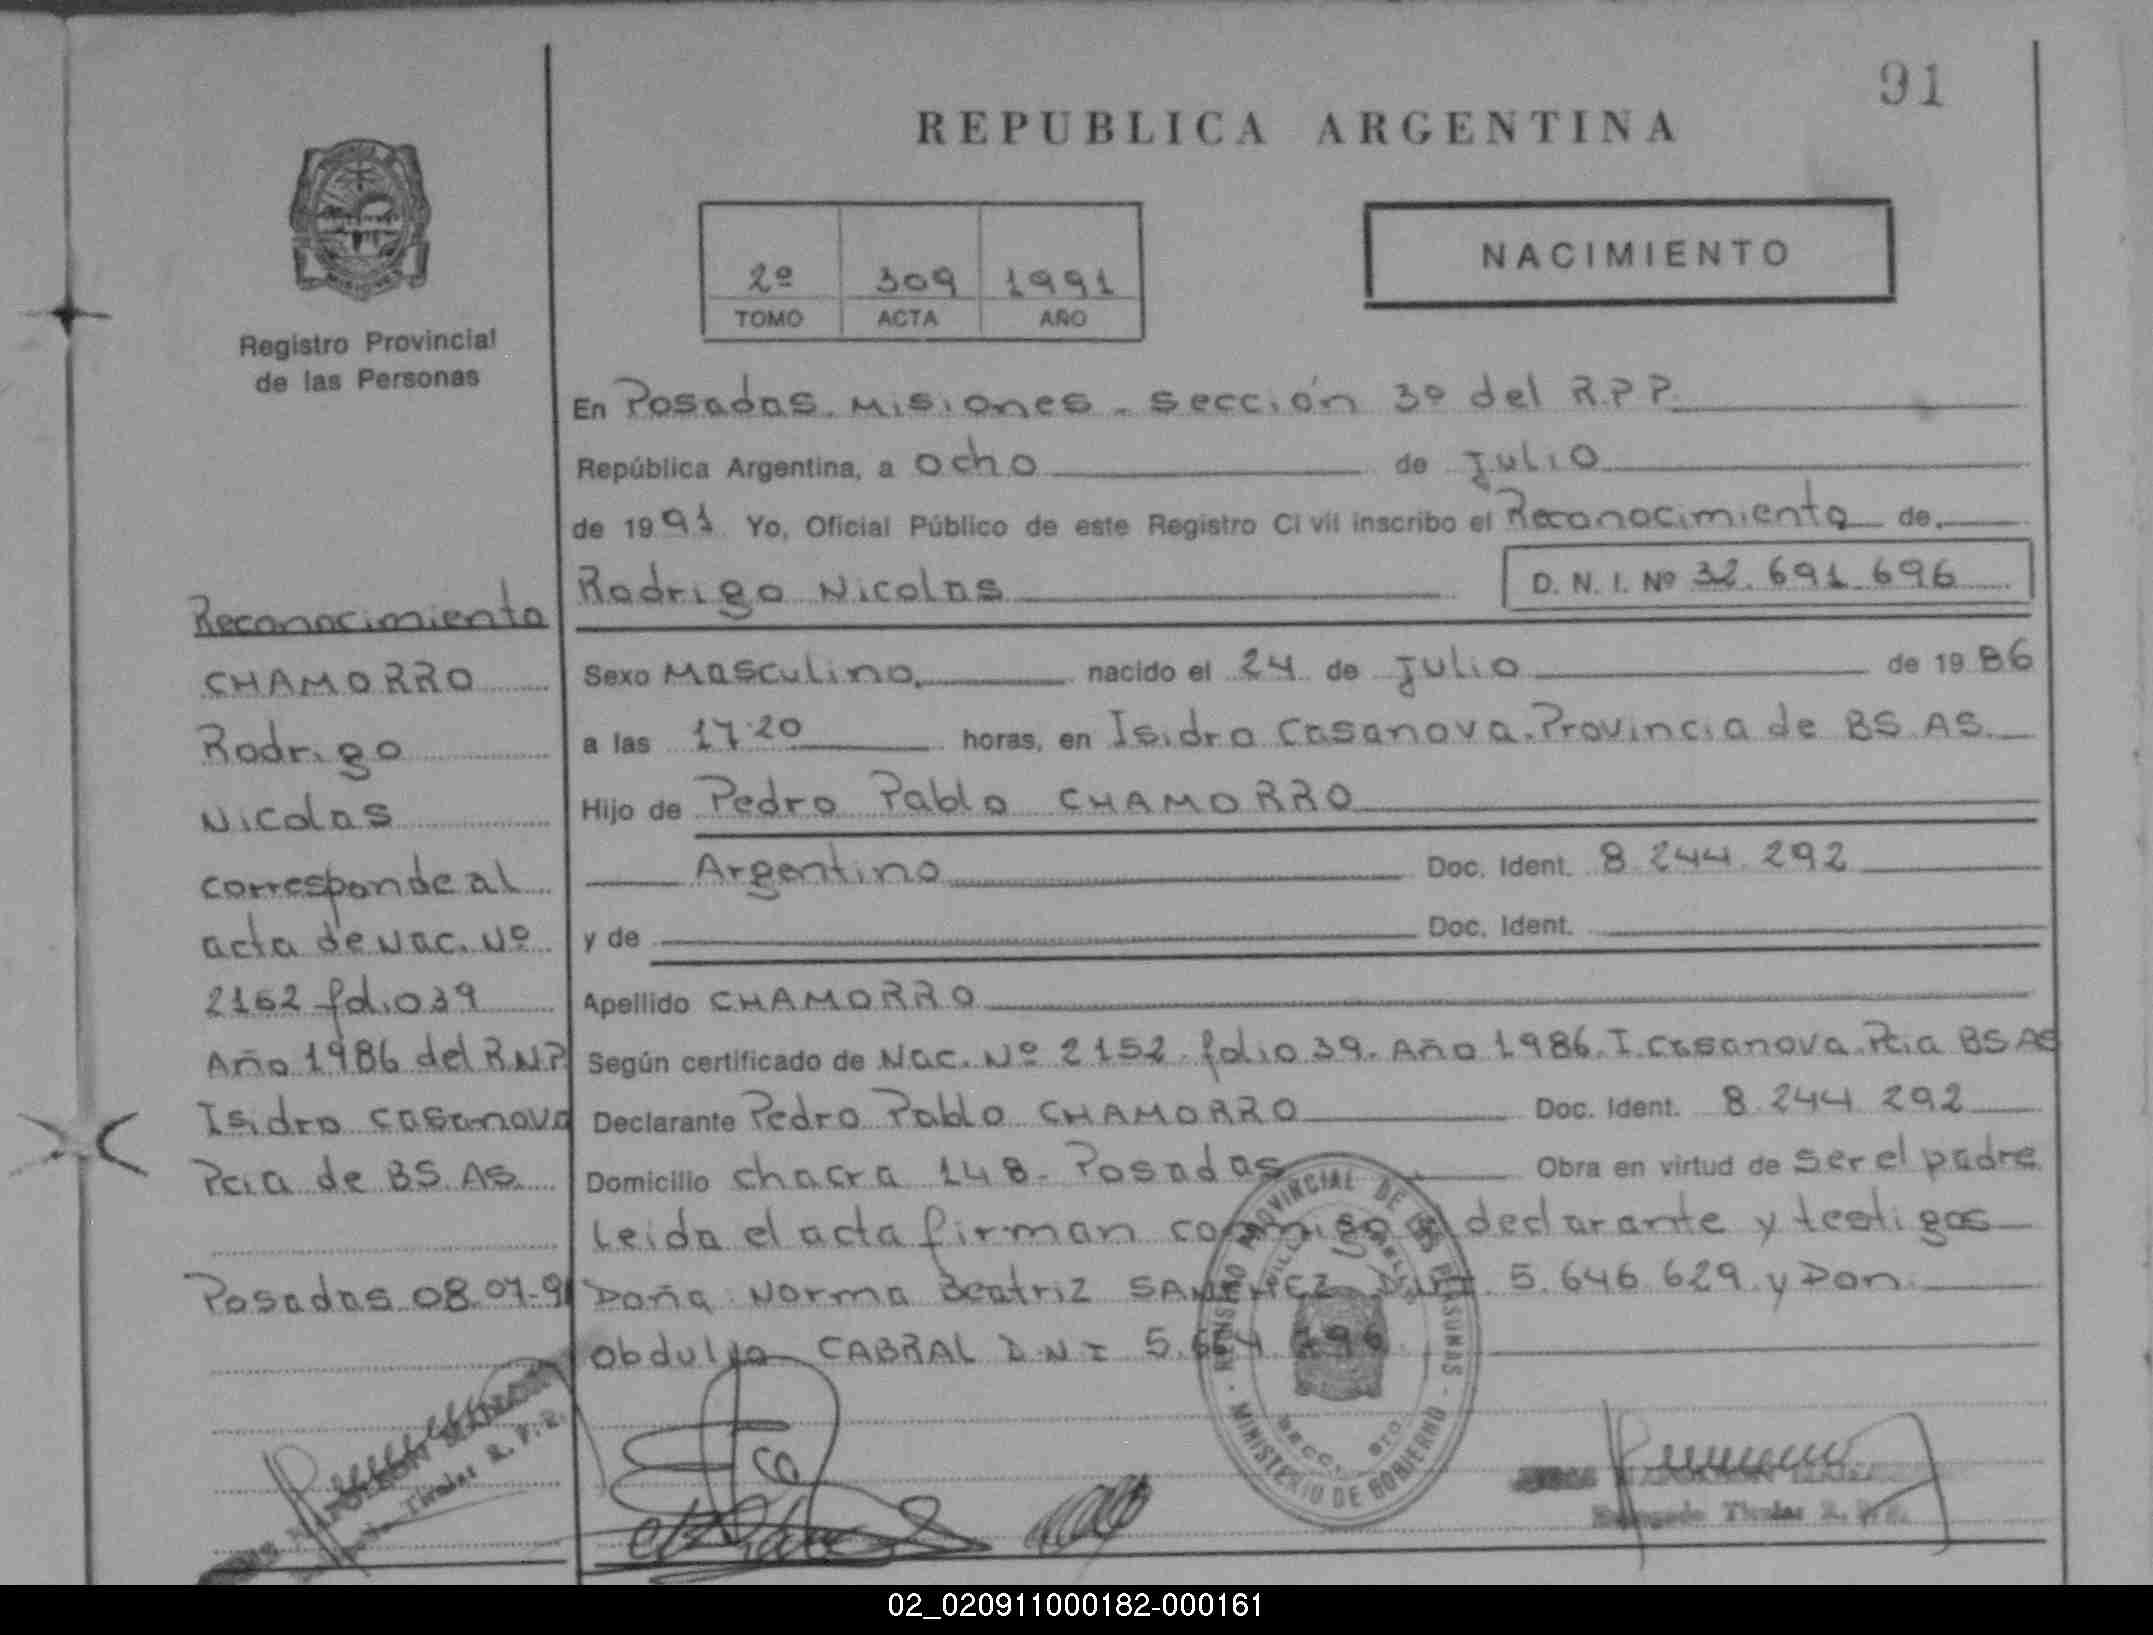 91
REPUBLICA ARGENTINA
2º 309 1991
TOMO ACTA AÑO
NACIMIENTO
Registro Provincial
de las Personas
En Posadas. Misiones - sección 3º del R.P.P.
República Argentina, a ocho de Julio
de 1991 Yo, Oficial Público de este Registro Civil inscribo el Reconocimiento de
Rodrigo Nicolas D. N. I. Nº 32.691.696
Sexo Masculino, nacido el 24 de Julio de 1986
a las 17.20 horas, en Isidro Casanova. Provincia de BS.AS.
Hijo de Pedro Pablo CHAMORRO
Argentino Doc. Ident. 8.244.292
y de Doc. Ident.
Apellido CHAMORRO
Según certificado de Nac. Nº 2152 folio 39. Año 1986. I. Casanova. Pcia BS AS
Declarante Pedro Pablo CHAMORRO Doc. Ident. 8.244.292
Domicilio chacra 148 - Posadas Obra en virtud de ser el padre
Leida el acta firman conmigo el declarante y testigos
Doña Norma Beatriz SANCHEZ D.N.I. 5.646.629 y Don
Obdulio CABRAL D.N.I 5.664.
Reconocimiento
CHAMORRO
Rodrigo
Nicolas
corresponde al
acta de Nac. Nº
2162 folio 39
Año 1986 del R.N.P.
Isidro Casanova
Pcia de BS.AS.
Posadas 08.07-91
REGISTRO PROVINCIAL DE LAS PERSONAS
MINISTERIO DE GOBIERNO
Titular R. P. P.
Delegado Titular R. P. P.
02_020911000182-000161